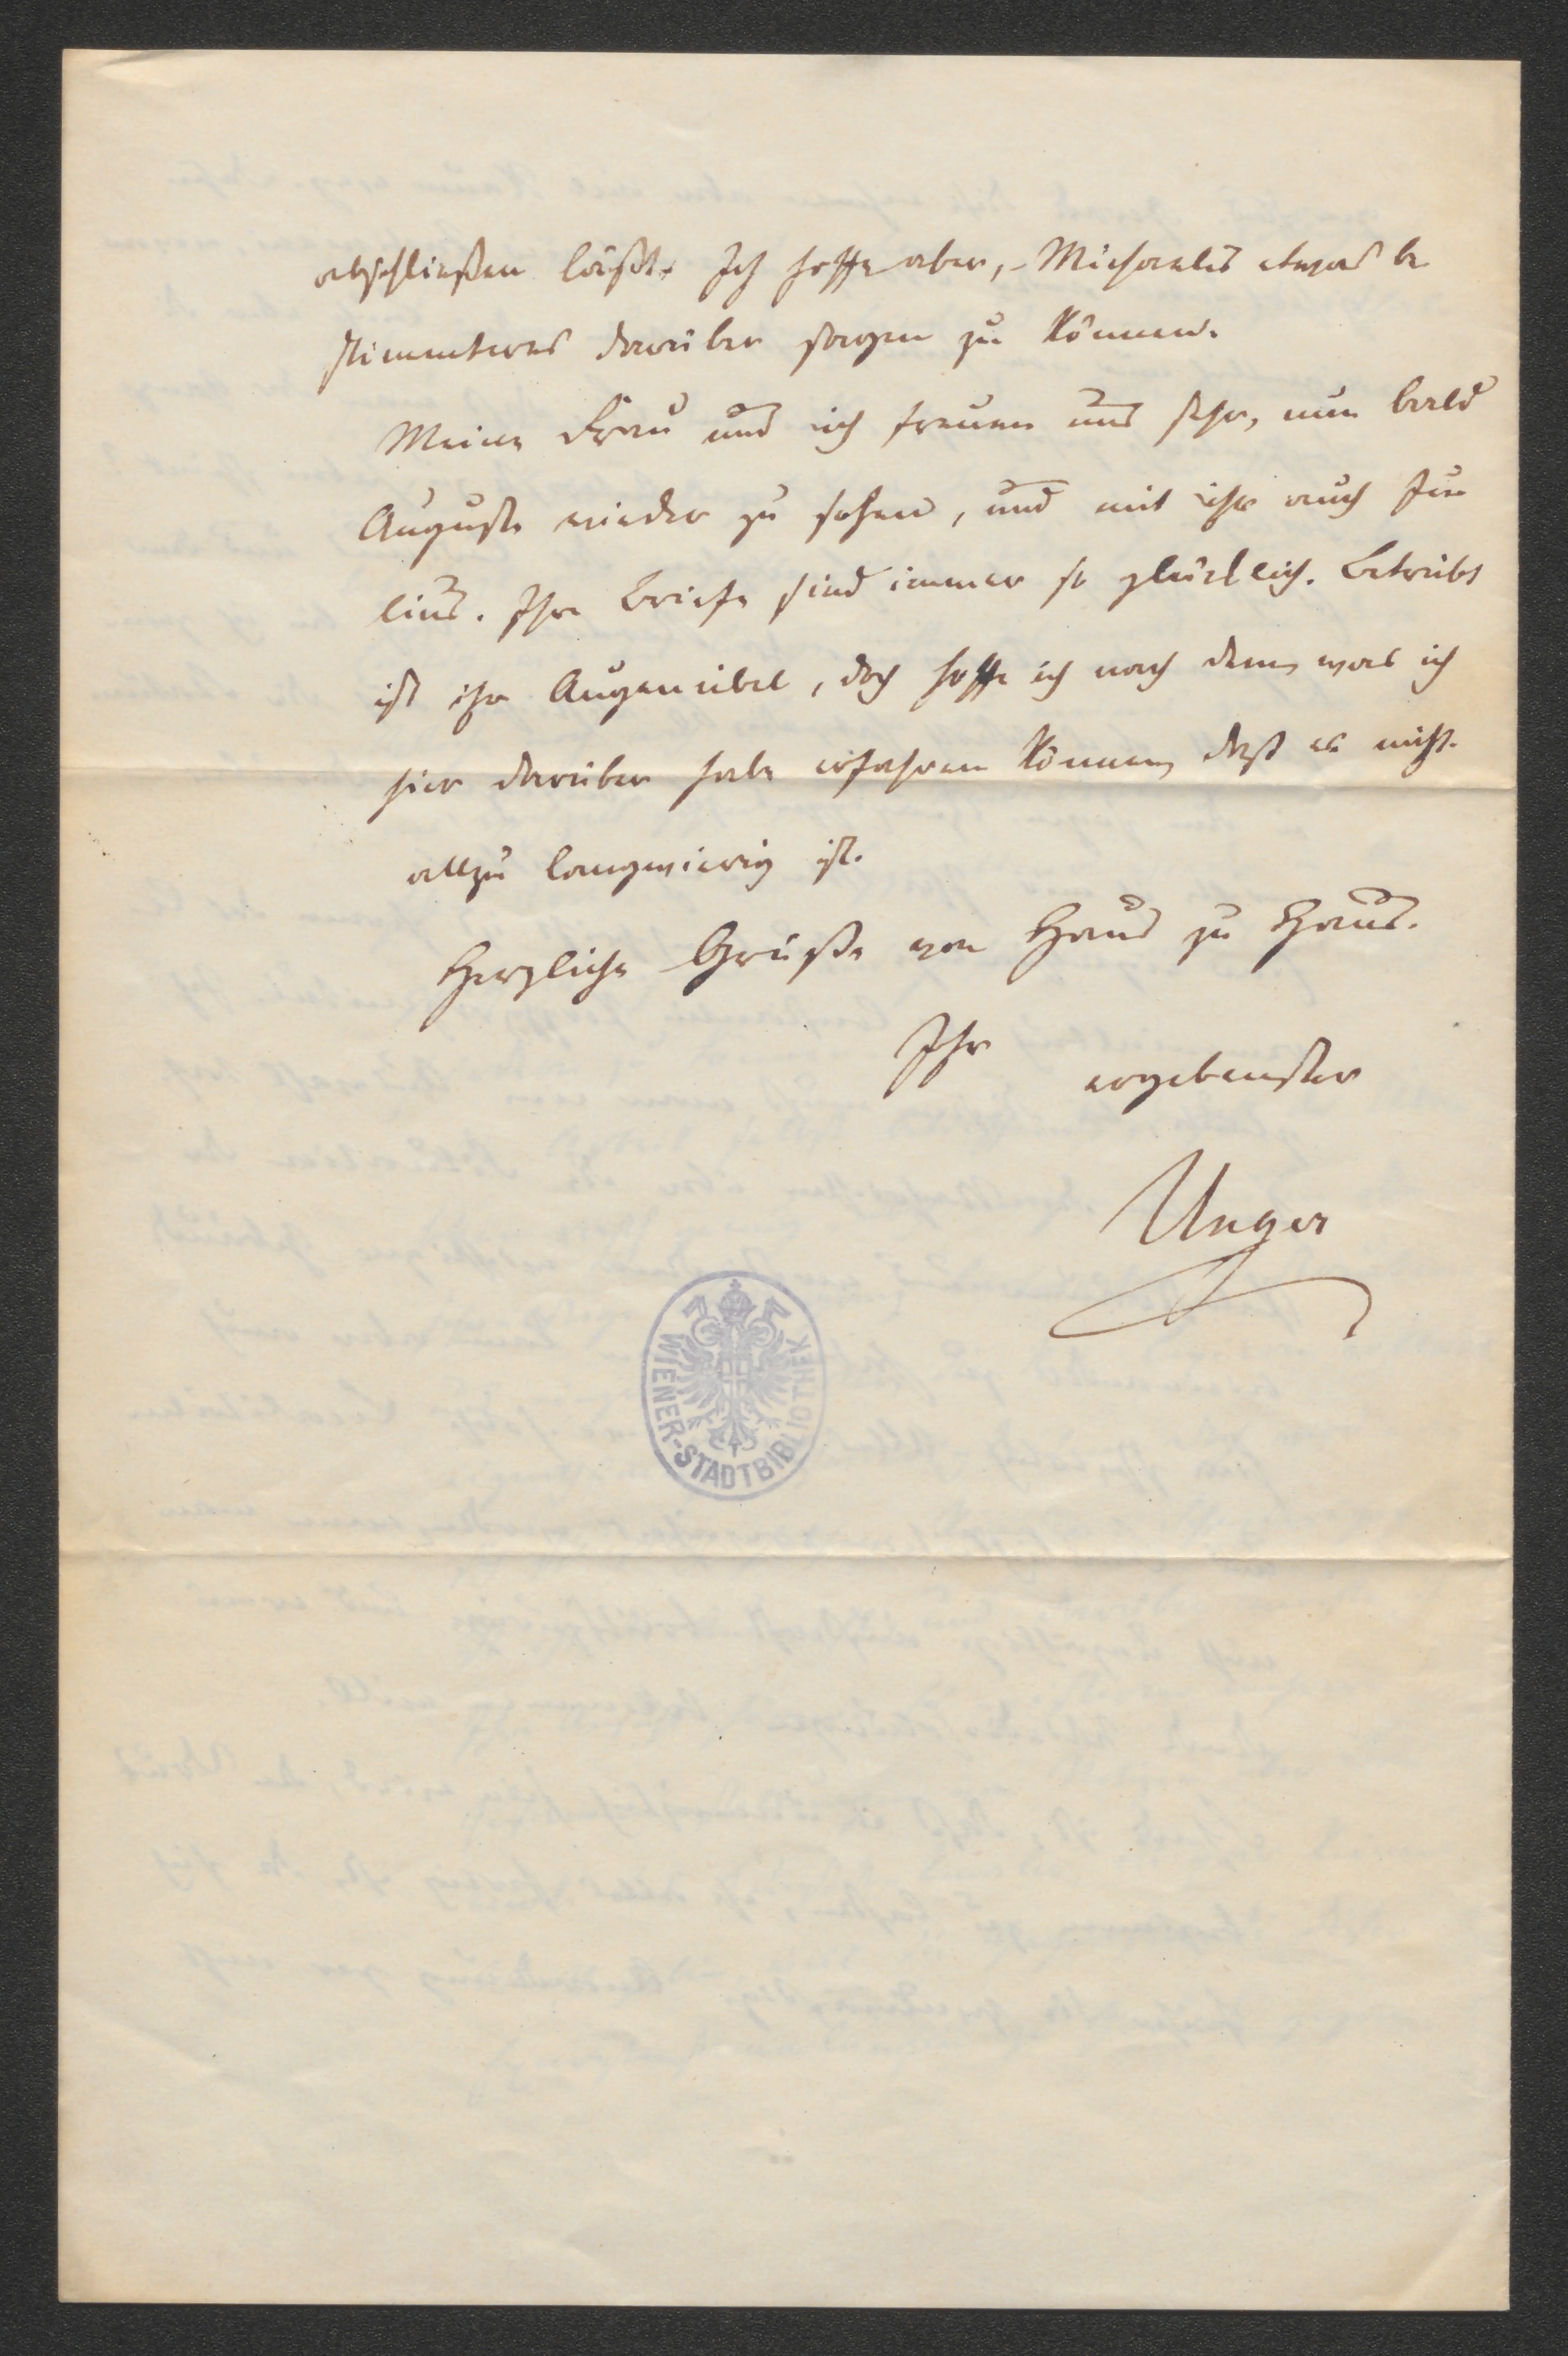 abschließen läßt. Ich hoffe aber, Michaelis etwas be
stimmteres darüber sagen zu können.
Meine Frau und ich freuen uns sehr, nun bald
Auguste wieder zu sehen, und mit ihr auch Ju
lius. Ihre Briefe sind immer so glücklich. Betrübt
ist ihr Augenübel, doch hoffe ich nach dem, was ich
hier darüber habe erfahren können, daß es nicht
allzu langwierig ist.
Herzliche Grüße von Haus zu Haus.
Ihr ergebenster
Unger
WIENER-STADTBIBLIOTHEK